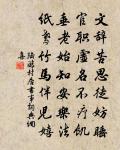 文辭苦思徒妨睡
官職虛名不療飢
垂老始知安樂法
紙鳶竹馬伴兒嬉
陸游村居書事詞典網